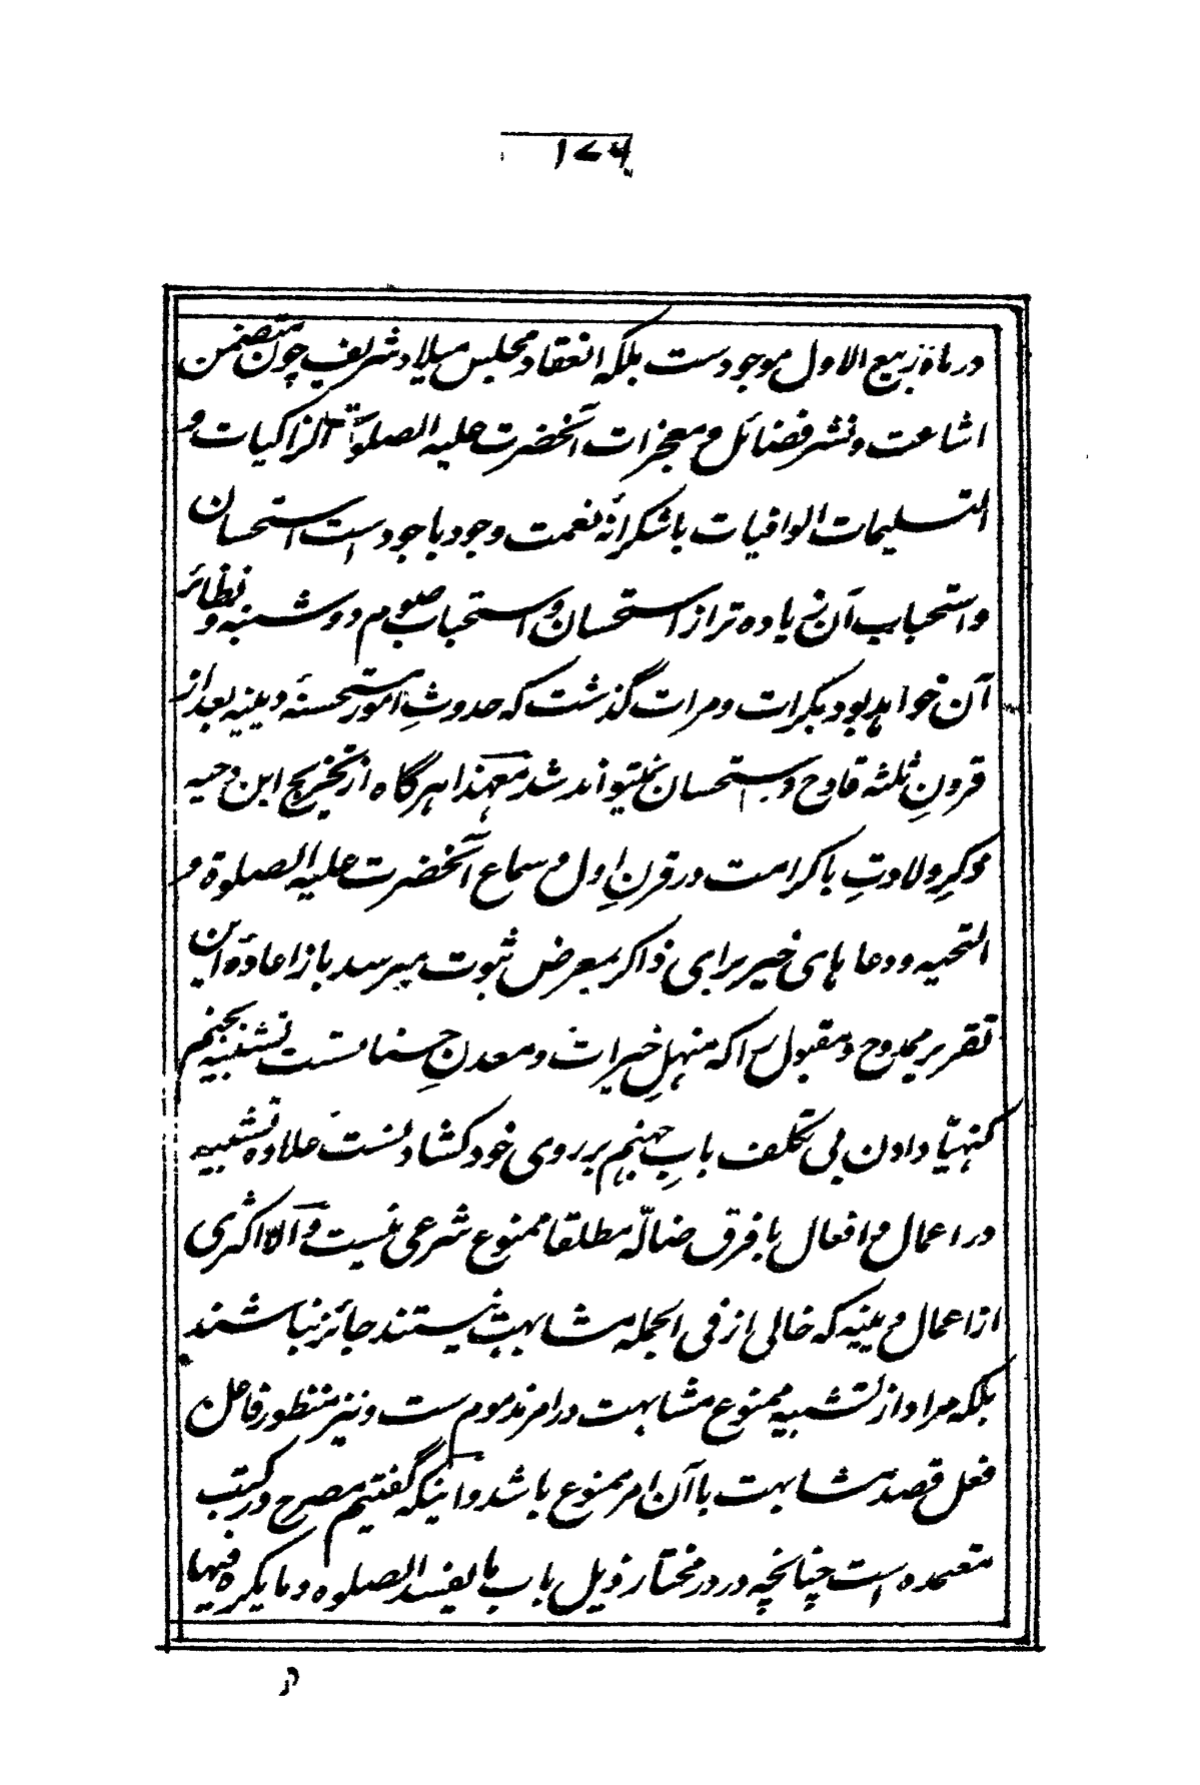 ۱۷۶
در ماه ربیع الاول موجودست بلکه انعقاد مجلس میلاد شریف چون متضمن
اشاعت و نشر فضائل و معجزات آنحضرت علیه الصلوٰة الزاکیات و
التسلیمات الوافیات باشکرانهٔ نعمت وجود باجودست استحسان
و استحباب آن زیاده تر از استحسان و استحباب صوم دوشنبه و نظائر
آن خواهد بود بکرات و مرات گذشت که حدوثِ امور مستحسنهٔ دینیه بعد از
قرونِ ثلثه قادح در استحسان نمیتواند شد معهذا هرگاه از تخریج ابن دحیه
ذکرِ ولادتِ باکرامت در قرنِ اول و سماع آنحضرت علیه الصلوة و
التحیه و دعا های خیر برای ذاکر بمعرض ثبوت میرسد باز اعادهٔ این
تقریر ممدوح و مقبول را که منهلِ خیرات و معدنِ حسناتست تشبیه بجنم
کنهیا دادن بی تکلف بابِ جهنم بر روی خود کشادنست علاوه تشبیه
در اعمال و افعال با فرق ضالّه مطلقا ممنوع شرعی نیست و الا اکثری
از اعمال دینیه که خالی از فی الجمله مشابهت نیستند جائز نباشند
بلکه مراد از تشبیه ممنوع مشابهت در امر مذموم ست و نیز منظور فاعل
فعل قصد مشابهت با آن امر ممنوع باشد و اینکه گفتیم مصرح در کتب
معتمده است چنانچه در درمختار ذیل باب ما یفسد الصلوة و ما یکره فیها